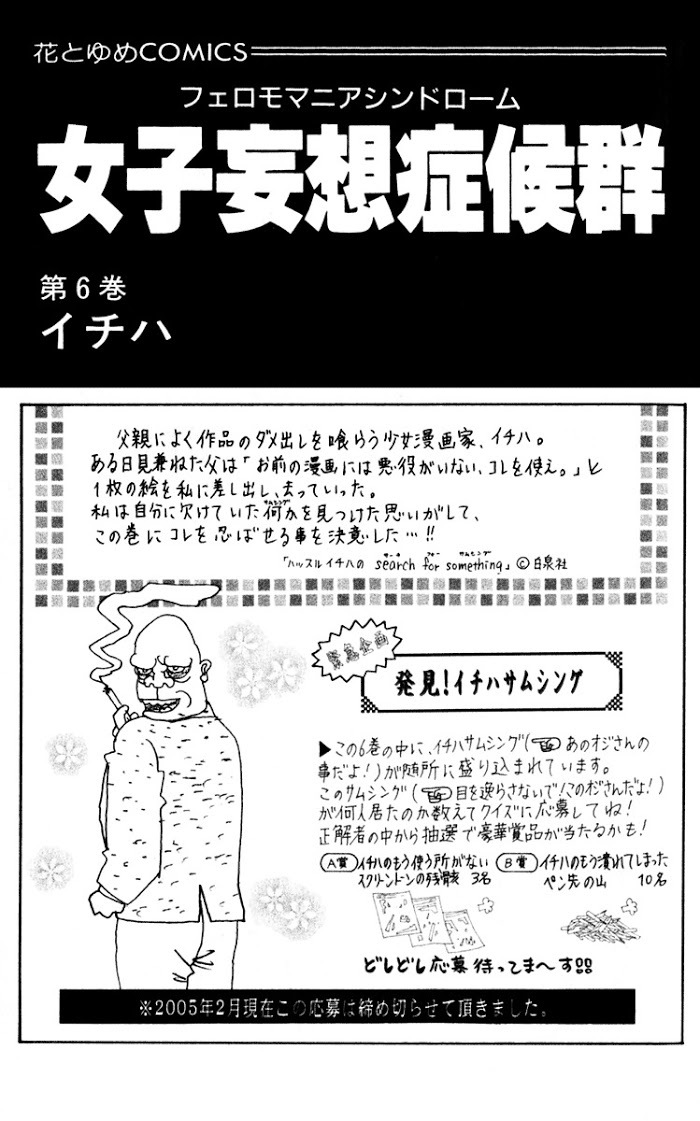 花とゆめCOMICS
フェロモマニアシンドローム
女子妄想症候群
第6巻
イチハ
父親によく作品のダメ出しを喰らう少女漫画家、イチハ。
ある日見兼ねた父は「お前の漫画には悪役がいない、コレを使え。」と
1枚の絵を私に差し出し、去っていった。
私は自分に欠けていた何か(サムシング)を見つけた思いがして、
この巻にコレを忍ばせる事を決意した…!!
「ハッスルイチハの search(サーチ) for(フォー) something(サムシング)」©白泉社
緊急企画
発見!イチハサムシング
▶この6巻の中に、イチハサムシング(☜あのオジさんの
事だよ!)が随所に盛り込まれています。
このサムシング(☜目を逸らさないで!このオジさんだよ!)
が何人居たのか数えてクイズに応募してね!
正解者の中から抽選で豪華賞品が当たるかも!
A賞 イチハのもう使う所がない
スクリーントーンの残骸 3名
B賞 イチハのもう潰れてしまった
ペン先の山 10名
どしどし応募待ってま〜す!!
※2005年2月現在この応募は締め切らせて頂きました。